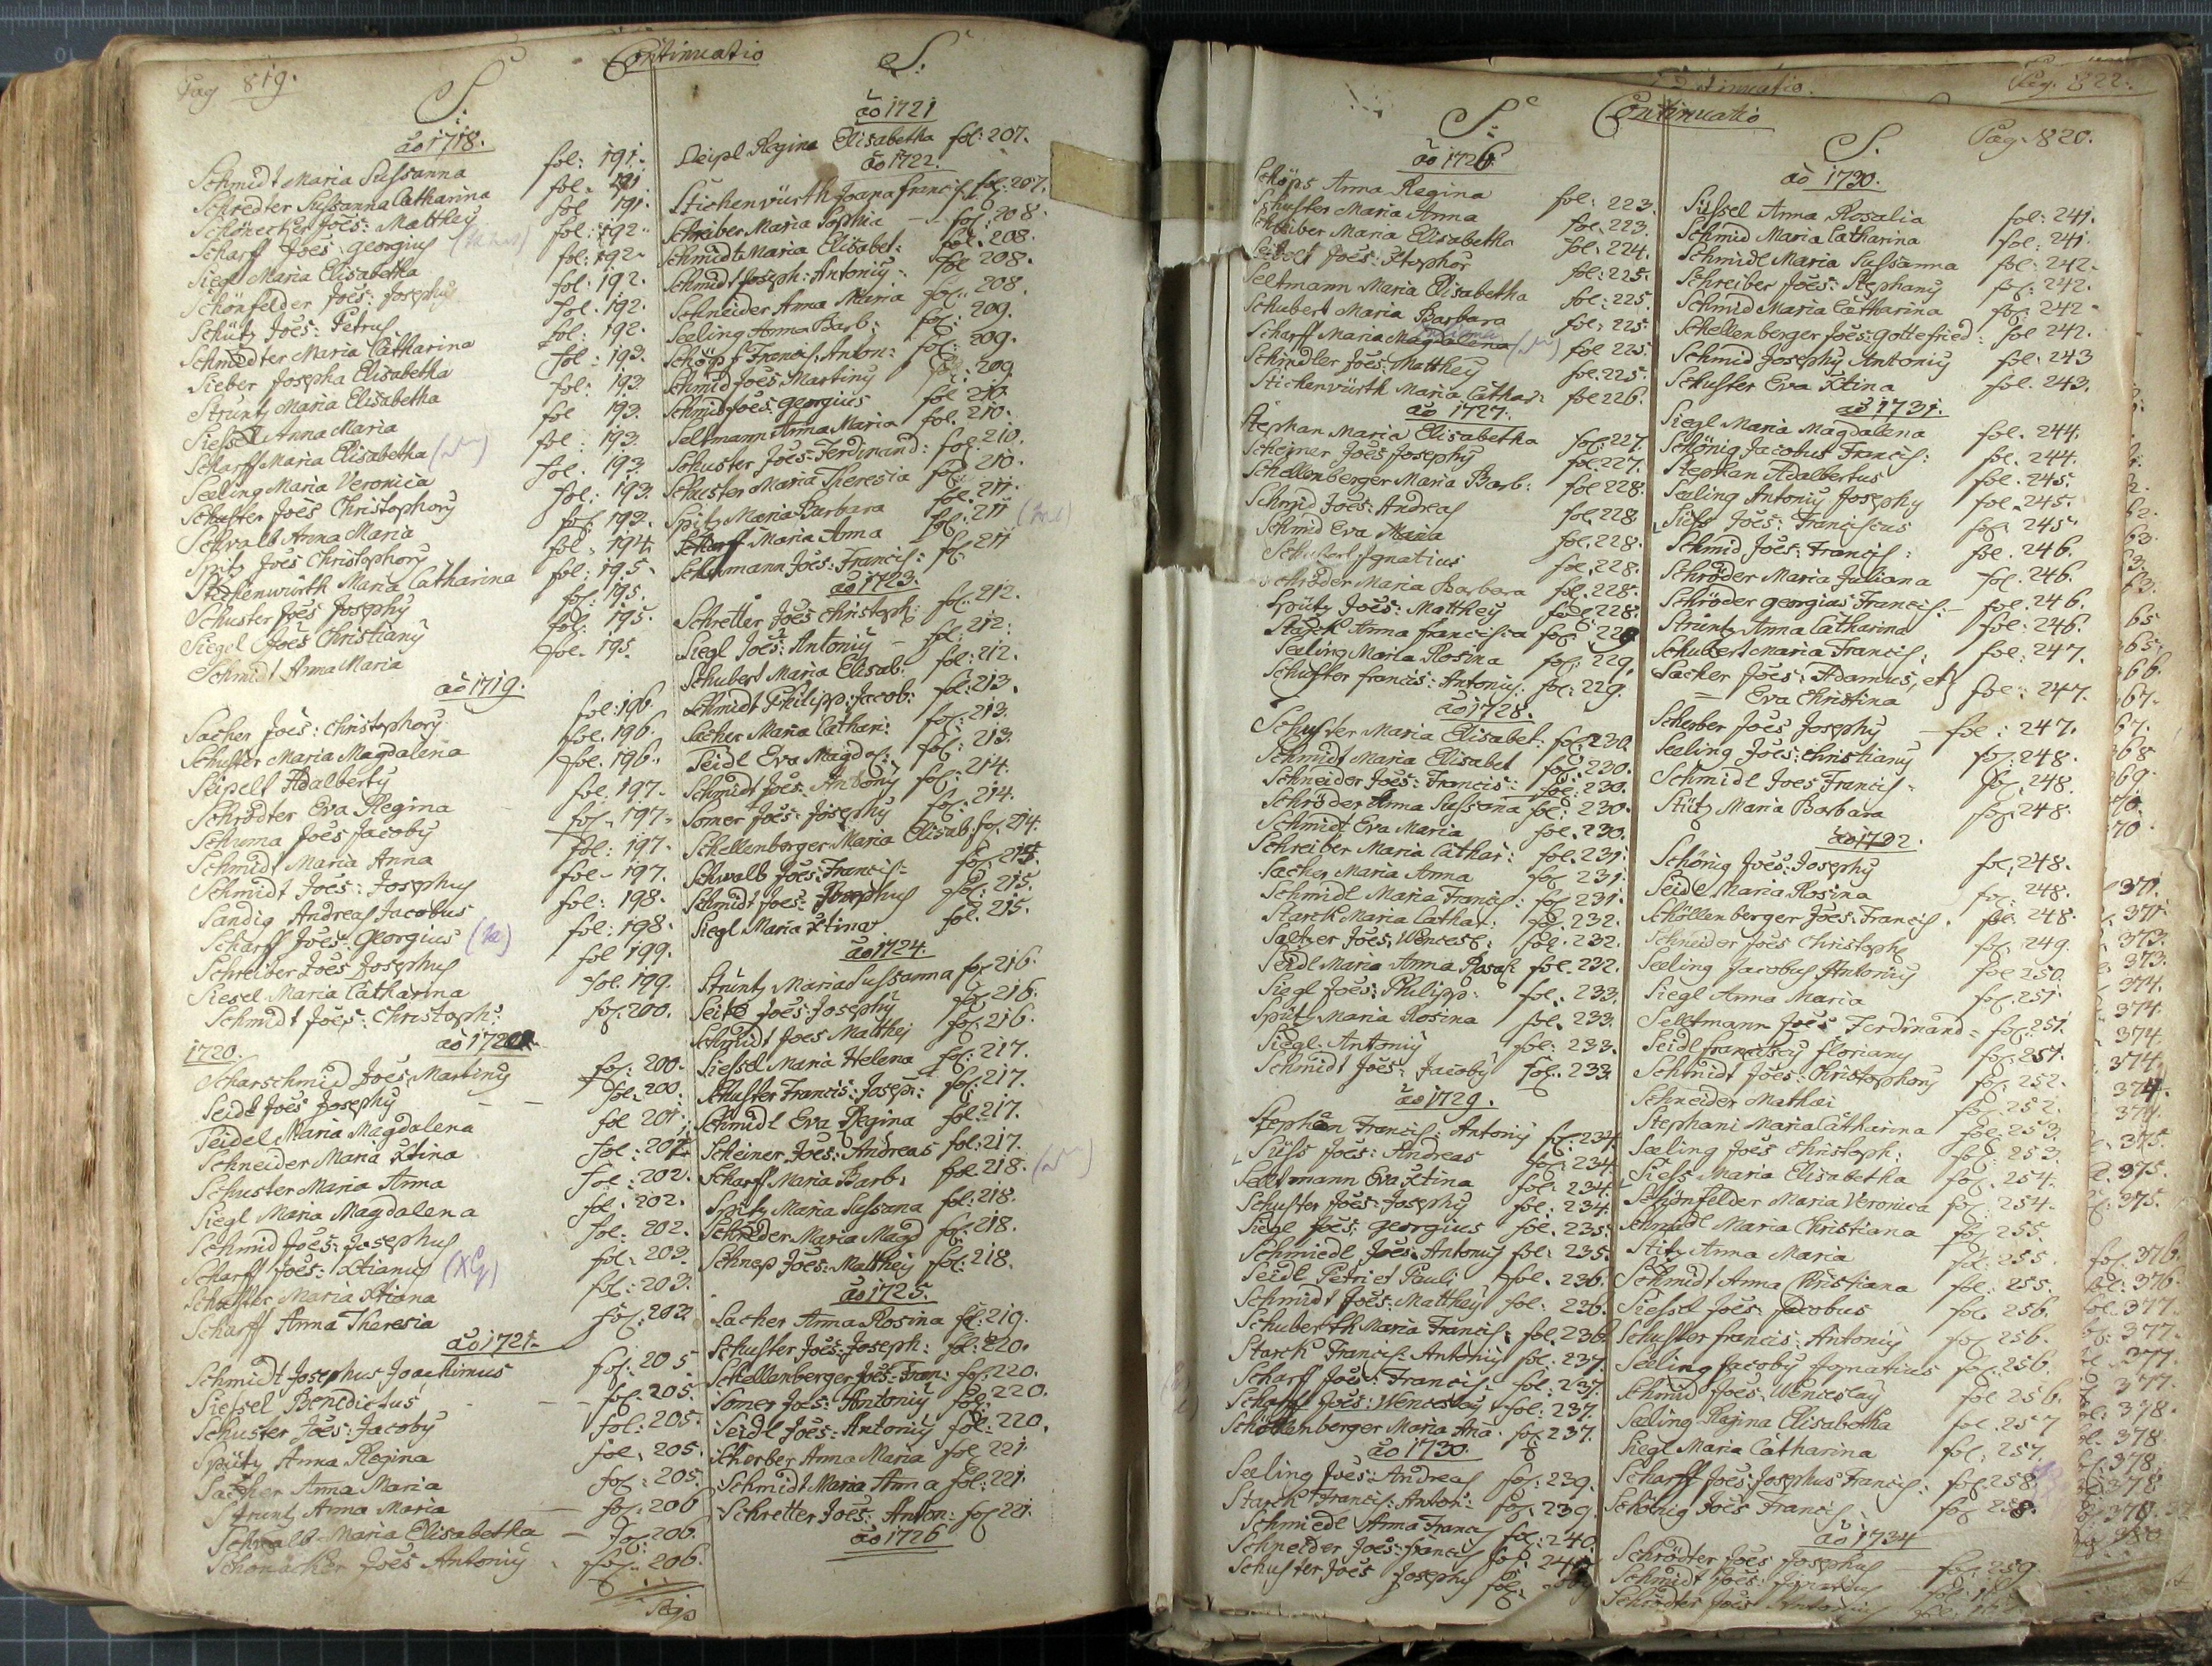 Pag 819.
Continuatio
S.
ao 1718.
Schmidt Maria Sussanna fol: 191.
Schredter Sussanna Catharina fol. 191
Schönecker Joēs: Matthey fol 191.
Scharff Joēs Georgius fol: 192.
Siegl Maria Elisabetha fol: 192.
Schönfelder Joēs: Josephy fol: 192.
Schütz Joēs: Petrus fol. 192.
Schmedter Maria Catharina fol: 192.
Sieber Josepha Elisabetha fol: 193.
Struntz Maria Elisabetha fol: 193.
Siessel Anna Maria fol 193.
Scharff Maria Elisabetha fol: 193.
Seeling Maria Veronica fol. 193.
Schuster Joēs Christophory fol: 193.
Schwalb Anna Maria fol: 193.
Spitz Joēs Christophory fol. 194.
Stichenwürth Maria Catharina fol: 195.
Schuster Joēs Josephy fol: 195.
Siegel Joēs Christiany fol: 195.
Schmidt Anna Maria fol. 195.
ao 1719.
Sacher Joēs: Christophory fol: 196.
Schuster Maria Magdalena fol. 196.
Seipelt Adalberty fol. 196.
Schrödter Eva Regina fol. 197.
Schroma Joēs Jacoby fol. 197.
Schmidt Maria Anna fol: 197.
Schmidt Joēs: Josephus fol. 197.
Sandig Andreas Jacobus fol: 198.
Scharff Joēs: Georgius fol: 198.
Schreiber Joēs Josephus fol 199.
Siesel Maria Catharina fol. 199.
Schmidt Joēs: Christoph: fol. 200.
1720. ao 1720
Scharschmid Joēs Martiny fol: 200.
Seidl Joēs Josephy fol. 200.
Seidel Maria Magdalena fol 201.
Schneider Maria Xtina fol: 202
Schuster Maria Anna fol: 202.
Siegl Maria Magdalena fol. 202.
Schmid Joēs: Josephus fol: 202.
Scharff Joēs: Xtianus (XG) fol: 203.
Schuster Maria Xtiana fol: 203.
Scharff Anna Theresia fol: 203.
ao 1721.
Schmidt Josephus Joachimus fol: 205
Siessel Benedictus fol. 205.
Schuster Joēs: Jacoby fol: 205.
Spütz Anna Regina fol. 205.
Sacher Anna Maria fol: 205.
Struntz Anna Maria fol. 206
Schwalb Maria Elisabetha fol. 206.
Schonäcker Joēs Antoniy fol. 206.
S.
ao 1721
Seipl Regina Elisabetha fol: 207.
ao 1722.
Stichenwürth Joana Francis fol. 207.
Schreiber Maria Sophie fol: 208.
Schmidt Maria Elisabet: fol. 208.
Schmidt Joseph: Antoniy fol 208.
Schneider Anna Maria fol: 208.
Seeling Anna Barb: fol: 209.
Schöps Francis: Anton: fol: 209.
Schmid Joēs Martiny fol: 209
Schmid Joēs Georgius fol 210.
Seltmann Anna Maria fol. 210.
Schuster Joēs: Ferdinand: fol. 210.
Schuster Maria Theresia fol 210.
Spitz Maria Barbara fol. 211.
Scharff Maria Anna fol: 211
Schumann Joēs: Francis: fol 211
ao 1723.
Schretter Joēs Christoph: fol. 212.
Siegl Joēs: Antoniy fol: 212.
Schubert Maria Elisab: fol: 212.
Schmidt Philipp: Jacob: fol: 213.
Sacher Maria Cathari: fol: 213.
Seidl Eva Magdal: fol: 213.
Schmidt Joēs: Antony fol: 214.
Somer Joēs: Josephy fol: 214.
Schellenberger Maria Elisab: fol. 214.
Schwalb Joēs: Francis: fol. 215.
Schmidt Joēs: Josephus fol: 215.
Siegl Maria Xtina fol. 215.
ao 1724.
Struntz Maria Sussanna fol 216.
Seite Joēs: Josephy fol 216.
Schmidt Joēs Mathej fol 216.
Siessel Maria Helena fol: 217.
Schuster Francis: Joseph: fol: 217.
Schmidt Eva Regina fol 217.
Scheiner Joēs: Andreas fol: 217.
Scharff Maria Barb: fol 218.
Spütz Maria Sussana fol: 218.
Schröder Maria Magd fol 218.
Schnep Joēs: Matthey fol: 218.
ao 1725.
Sacher Anna Rosina fol: 219.
Schuster Joēs: Joseph: fol: 220.
Schellenberger Joēs: Fran: fol: 220.
Somer Joēs: Antoniy fol: 220.
Seidl Joēs: Antoniy fol: 220.
Scherber Anna Maria fol 221
Schmidt Maria Anna fol: 221.
Schretter Joēs: Anton: fol 221.
ao 1726
Continuatio. Pag. 822.
Continuatio Pag. 820.
S.
ao 1726.
Schöps Anna Regina fol: 223.
Schuster Maria Anna fol. 223.
Schreiber Maria Elisabetha fol: 224.
Seibolt Joēs: Xtophor fol: 225.
Seltmann Maria Elisabetha fol: 225.
Schubert Maria Barbara fol: 225
Scharff Maria Magdalena fol 225.
Schindler Joēs: Matthey fol. 225.
Stichenvürth Maria Cathar: fol 226.
ao 1727.
Stephan Maria Elisabetha fol: 227.
Scheiner Joēs Josephy fol. 227.
Schellenberger Maria Barb: fol 228.
Schmid Joēs: Andreas fol. 228.
Schmid Eva Maria fol. 228.
Schubert Ignatius fol. 228.
Schröder Maria Barbara fol. 228.
Spütz Joēs: Matthey fol. 228.
Starck Anna Francisca fol 229
Sealing Maria Rosina fol. 229.
Schuster Francis: Antoniy: fol: 229.
ao 1728.
Schuster Maria Elisabet: fol 230.
Schmidt Maria Elisabet fol. 230.
Schneider Joēs: Francis: fol. 230.
Schröder Anna Sussana fol: 230.
Schmidt Eva Maria fol. 230.
Schreiber Maria Cathar: fol. 231.
Sacher Maria Anna fol 231.
Schmidl Maria Francis: fol 231.
Starck Maria Cathar: fol. 232.
Saltzer Joēs: Wencesl: fol. 232.
Seidl Maria Anna Rosal: fol. 232.
Siegl Joēs: Philipp: fol. 233.
Spütz Maria Rosina fol. 233.
Siegl Antoniy fol: 233.
Schmidt Joēs: Jacoby fol. 233.
ao 1729.
Stephan Francis: Antoniy fol: 234
Süss Joēs: Andreas fol: 234.
Seltmann Eva Xtina fol: 234.
Schuster Joēs: Josephy fol. 234.
Siegl Joēs: Georgius fol. 235.
Schmiedl Joēs: Antoniy fol: 235.
Seidl Petri et Pauli fol. 236.
Schmidt Joēs: Matthey fol: 236.
Schuberth Maria Francis: fol. 236.
Starck Francis: Antoniy fol. 237.
Scharff Joēs: Francis: fol: 237.
Scharff Joēs: Wenceslay fol: 237.
Schöttenberger Maria Ana. fol 237.
ao 1730.
Seeling Joēs: Andreas fol: 239.
Starck Francis: Anton: fol: 239.
Schmiedl Anna Francis fol: 240.
Schneider Joēs: Francis fol: 240
Schuster Joēs Josephy fol.
S.
ao 1730.
Süssel Anna Rosalia fol: 241.
Schmid Maria Catharina fol: 241.
Schmidl Maria Sussanna fol: 242.
Schreiber Joēs: Stephany fol: 242.
Schmid Maria Catharina fol: 242.
Schellenberger Joēs: Gottefried: fol 242.
Schmid Josephy Antoniy fol: 243
Schuster Eva Xtina fol. 243.
ao 1731.
Siegl Maria Magdalena fol. 244.
Schönig Jacobus Francis: fol. 244.
Stephan Adalbertus fol. 245.
Seeling Antoniy Josephy fol. 245.
Siess Joēs: Franciscus fol. 245.
Schmid Joēs: Francis: fol. 246.
Schröder Maria Juliana fol. 246.
Schröder Georgius Francis: fol. 246.
Struntz Anna Catharina fol: 246.
Schubert Maria Francis: fol: 247.
Sacher Joēs: Adamus, et
Eva Christina fol: 247.
Scherber Joēs Josephy fol: 247.
Seeling Joēs: Christiany fol: 248.
Schmidl Joēs Francis: fol. 248.
Stütz Maria Barbara fol. 248.
ao 1732.
Schönig Joēs: Josephy fol. 248.
Seidl Maria Rosina fol: 248.
Schöllenberger Joēs: Francis. fol: 248.
Schneider Joēs Christophy fol. 249.
Seeling Jacobus Antoniy fol 250.
Siegl Anna Maria fol. 251.
Selltmann Joēs Ferdinand fol. 251.
Seidl Franciscy Floriany fol. 251.
Schmidt Joēs: Christophory fol. 252.
Schneider Mathäi fol. 252.
Stephani Maria Catharina fol. 253.
Seeling Joēs Christoph: fol: 253.
Siess Maria Elisabetha fol. 254.
Schönfelder Maria Veronica fol: 254.
Schmidl Maria Christiana fol 255.
Stitz Anna Maria fol: 255.
Schmidt Anna Christiana fol: 255.
Siessel Joēs: Jacobus fol. 256.
Schuster Francis: Antoniy fol 256.
Seeling Jacoby Ignatius fol. 256.
Schmid Joēs: Wenceslay fol 256.
Seeling Regina Elisabetha fol. 257
Siegl Maria Catharina fol: 257.
Scharff Joēs: Josephus Francis: fol. 258.
Schönig Joēs Francis: fol 258.
ao 1734
Schrödter Joēs Josephus fol: 259
Schmidt Joēs: Ignatius
Schrödter Joēs Antoniy
371.
371.
373.
373.
374.
374.
374.
374.
374.
374.
375.
375.
375.
fol. 376.
fol: 376.
fol. 377.
377.
377.
377.
378.
378.
378.
378
378.
380